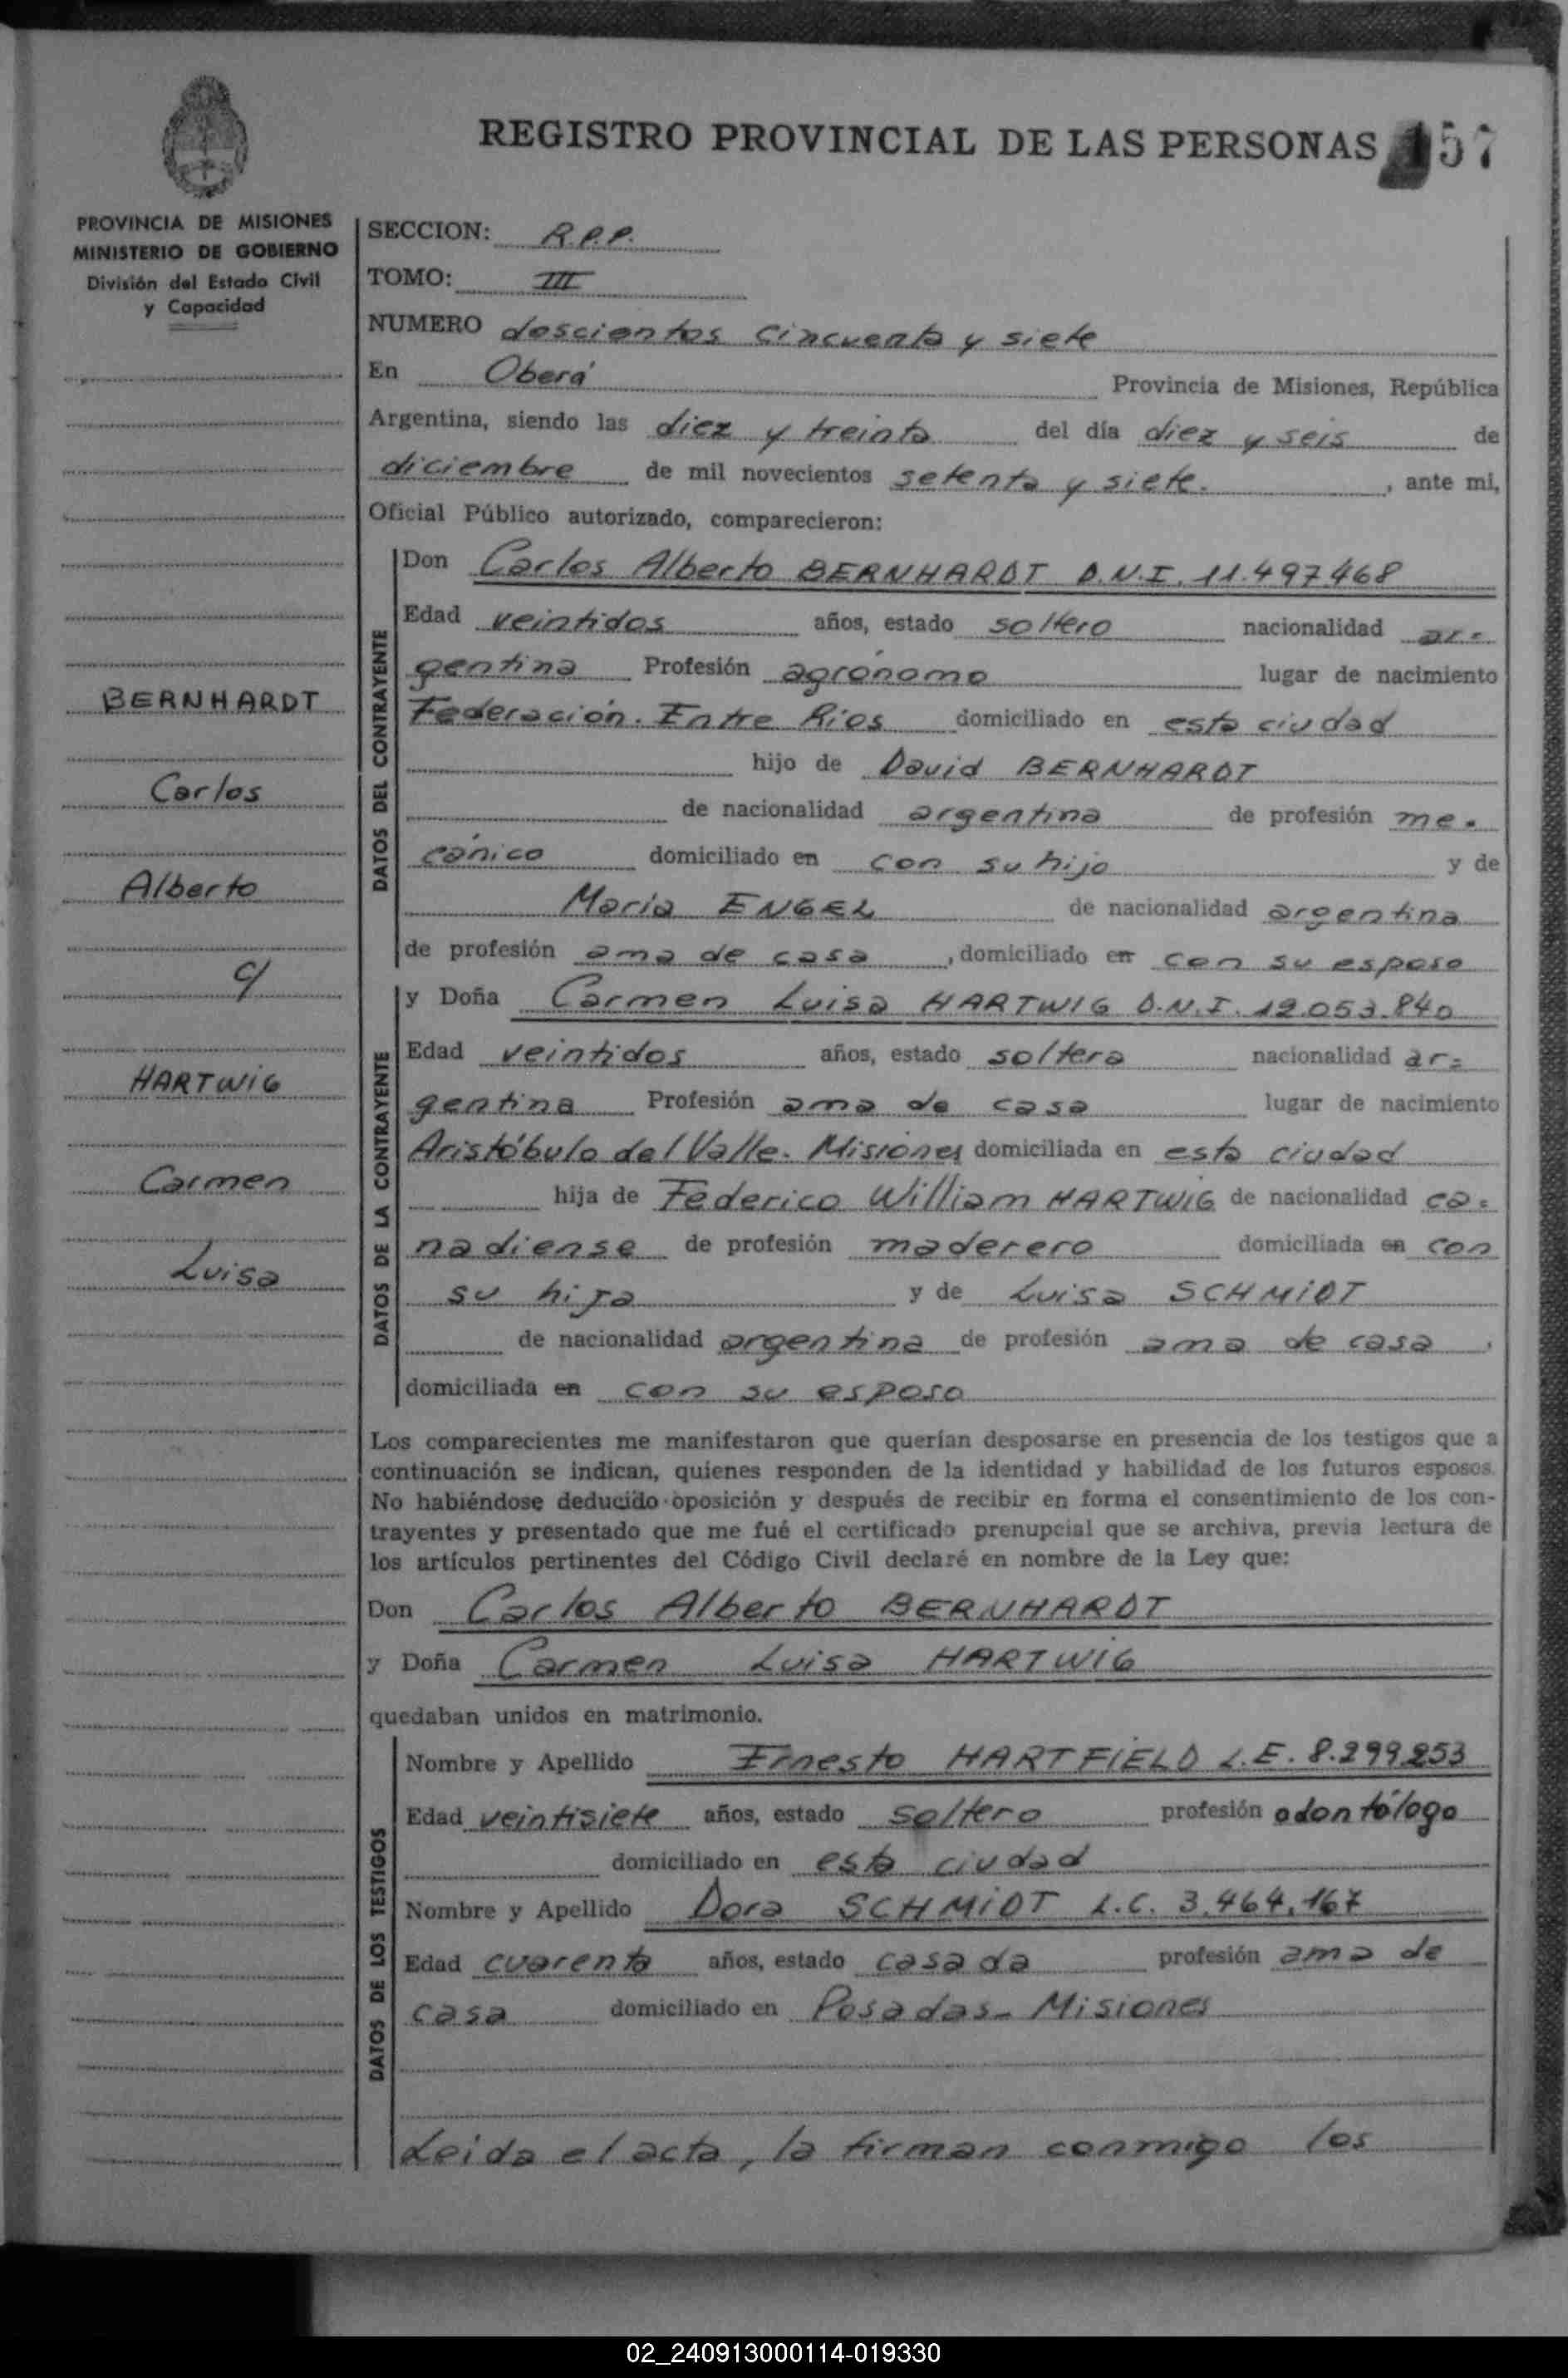 REGISTRO PROVINCIAL DE LAS PERSONAS 57
PROVINCIA DE MISIONES
MINISTERIO DE GOBIERNO
División del Estado Civil
y Capacidad
BERNHARDT
Carlos
Alberto
c/
HARTWIG
Carmen
Luisa
SECCION: R.P.P.
TOMO: III
NUMERO doscientos cincuenta y siete
En Oberá Provincia de Misiones, República
Argentina, siendo las diez y treinta del día diez y seis de
diciembre de mil novecientos setenta y siete. , ante mi,
Oficial Público autorizado, comparecieron:
DATOS DEL CONTRAYENTE
Don Carlos Alberto BERNHARDT D.N.I. 11.497.468
Edad veintidos años, estado soltero nacionalidad ar-
gentina Profesión agrónomo lugar de nacimiento
Federación. Entre Ríos domiciliado en esta ciudad
hijo de David BERNHARDT
de nacionalidad argentina de profesión me-
cánico domiciliado en con su hijo y de
María ENGEL de nacionalidad argentina
de profesión ama de casa , domiciliado en con su esposo
DATOS DE LA CONTRAYENTE
y Doña Carmen Luisa HARTWIG D.N.I. 12.053.840
Edad veintidos años, estado soltera nacionalidad ar=
gentina Profesión ama de casa lugar de nacimiento
Aristóbulo del Valle. Misiones domiciliada en esta ciudad
hija de Federico William HARTWIG de nacionalidad ca=
nadiense de profesión maderero domiciliada en con
su hija y de Luisa SCHMiDT
de nacionalidad argentina de profesión ama de casa ,
domiciliada en con su esposo
Los comparecientes me manifestaron que querían desposarse en presencia de los testigos que a
continuación se indican, quienes responden de la identidad y habilidad de los futuros esposos.
No habiéndose deducido oposición y después de recibir en forma el consentimiento de los con-
trayentes y presentado que me fué el certificado prenupcial que se archiva, previa lectura de
los artículos pertinentes del Código Civil declaré en nombre de la Ley que:
Don Carlos Alberto BERNHARDT
y Doña Carmen Luisa HARTWIG
quedaban unidos en matrimonio.
DATOS DE LOS TESTIGOS
Nombre y Apellido Ernesto HARTFiELD L.E. 8.299.253
Edad veintisiete años, estado soltero profesión odontólogo
domiciliado en esta ciudad
Nombre y Apellido Dora SCHMiDT L.C. 3.464.167
Edad cuarenta años, estado casada profesión ama de
casa domiciliado en Posadas - Misiones
Leida el acta, la firman conmigo los
02_240913000114-019330